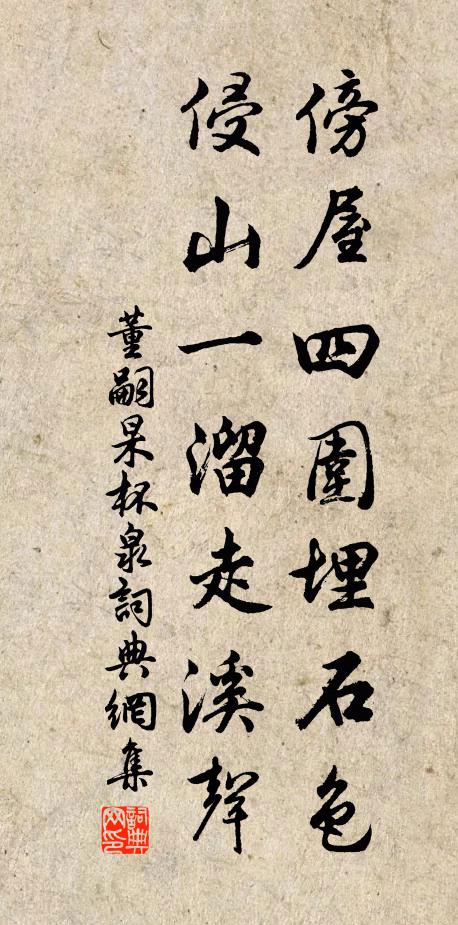 傍屋四圍埋石色
侵山一溜走溪聲
董嗣杲杯泉詞典網集
詞典网印